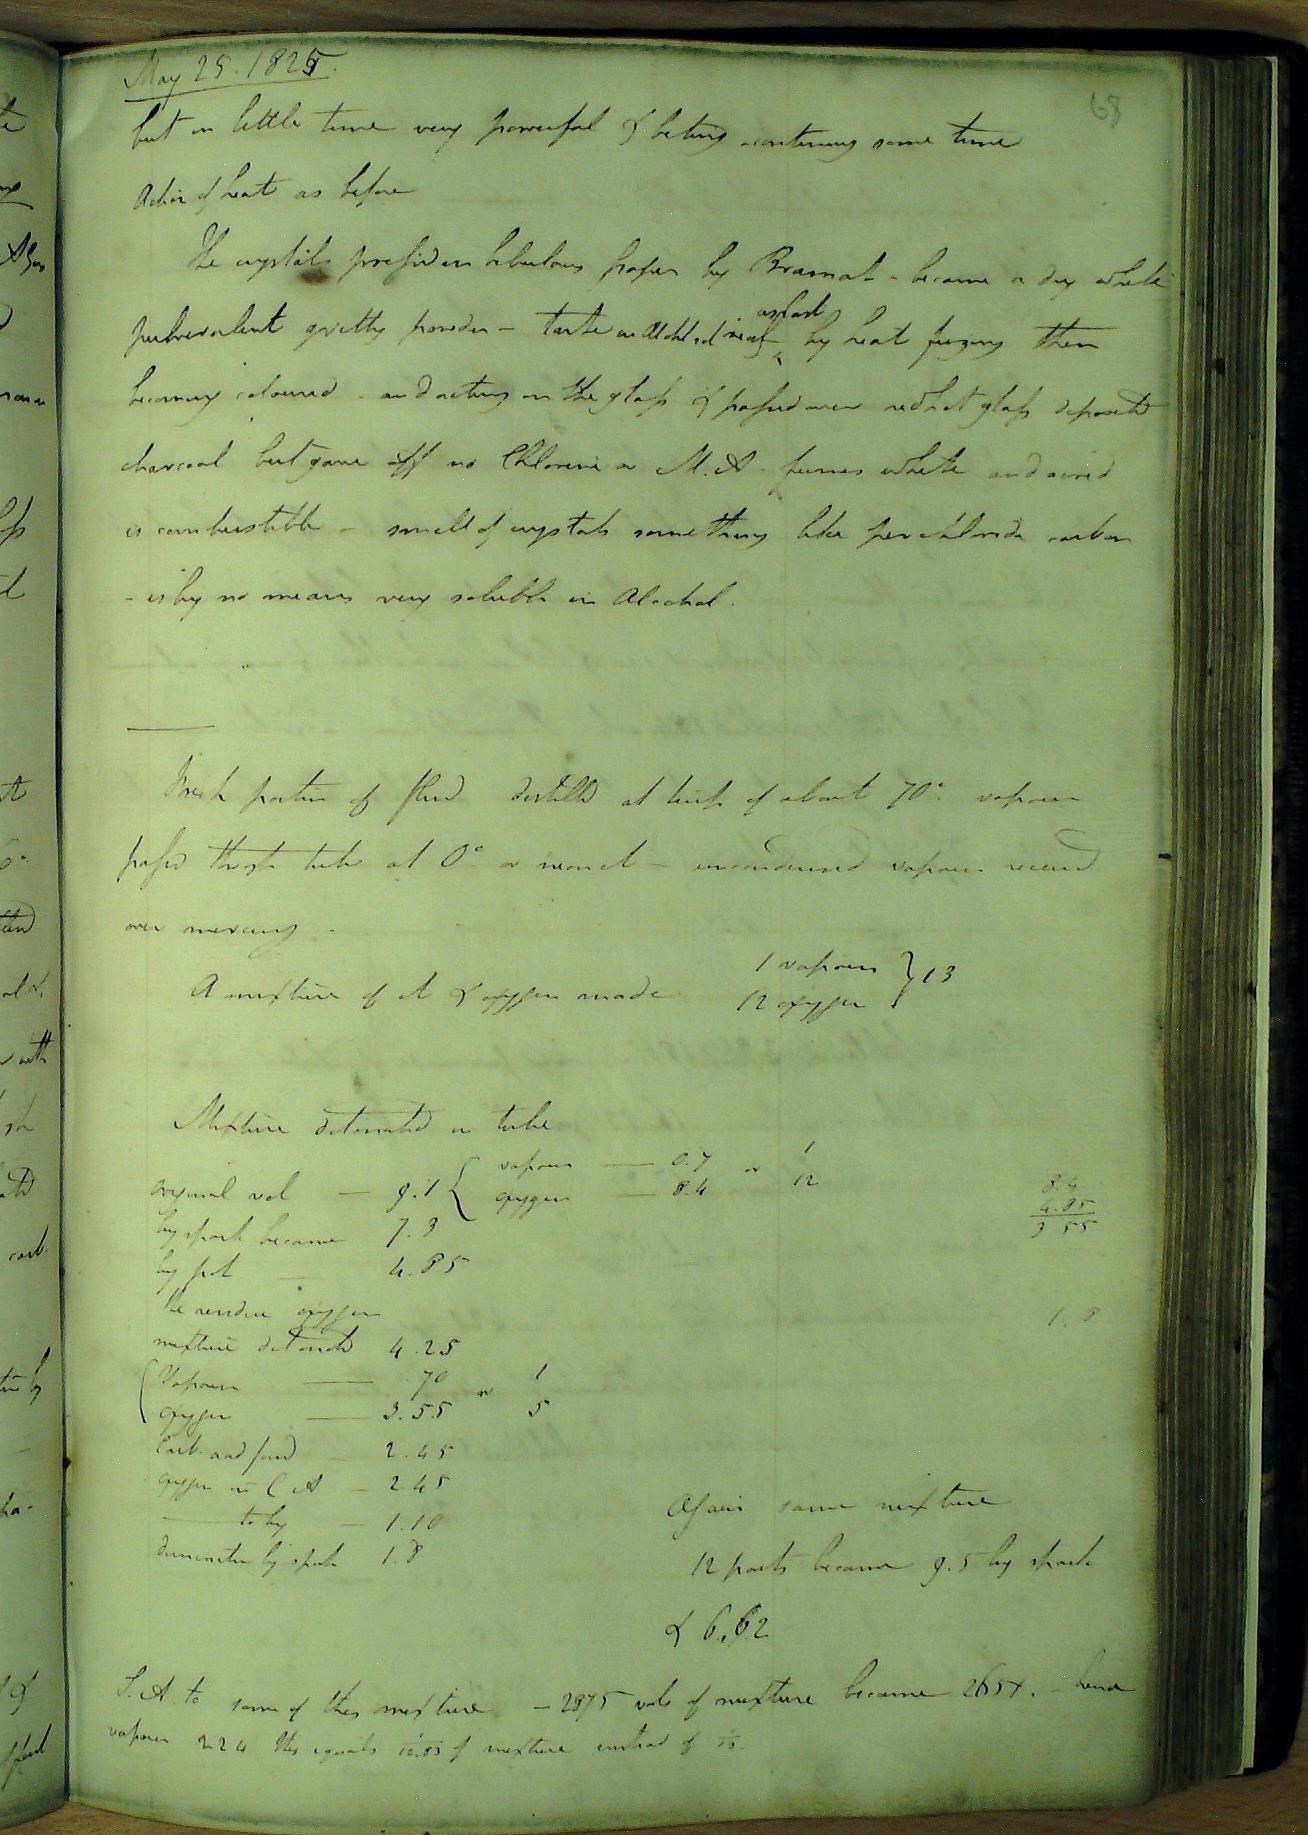 May 25. 1825.
68
but in little time very powerful & biting continuing some time
Action of heat as before
The crystals pressed in bibulous paper by Bramah - became a dry white
pulverulent gritty powder - taste in Alcohol
as last
by heat fuzing then
becoming coloured and acting on the glass & passed over red hot glass deposited
charcoal but gave off no Chlorine or M.A. fumes white and acrid
is combustible - smell of crystals something like per chloride carbon
- is by no means very soluble in Alcohol.
Fresh portion of fluid distilled at temp of about 70° vapour
passed through tube at 0° or near it - uncondensed vapour received
over mercury -
A mixture of it & oxygen made
1 vapour } 13
12 oxygen
Mixture detonated in tube
original vol — 9.1 { vapour — 0.7 or 1
oxygen — 8.4 12
by spark became 7.3
by pot — 4.85
8.4
4.85
3 55
the residue oxygen
1.8
mixture detonated 4.25
{ Vapour — .70 or 1
oxygen — 3.55 5
Carb. acid formd — 2.45
oxygen in C A — 2.45
— to hy — 1.10
diminution by spark 1.8
Again same mixture
12 parts became 9.5 by spark
& 6.62
S.A. to some of this mixture - 2875 vols of mixture became 2651. - hence
vapour 224 this equals 1/12.83 of mixture instead of 1/13.